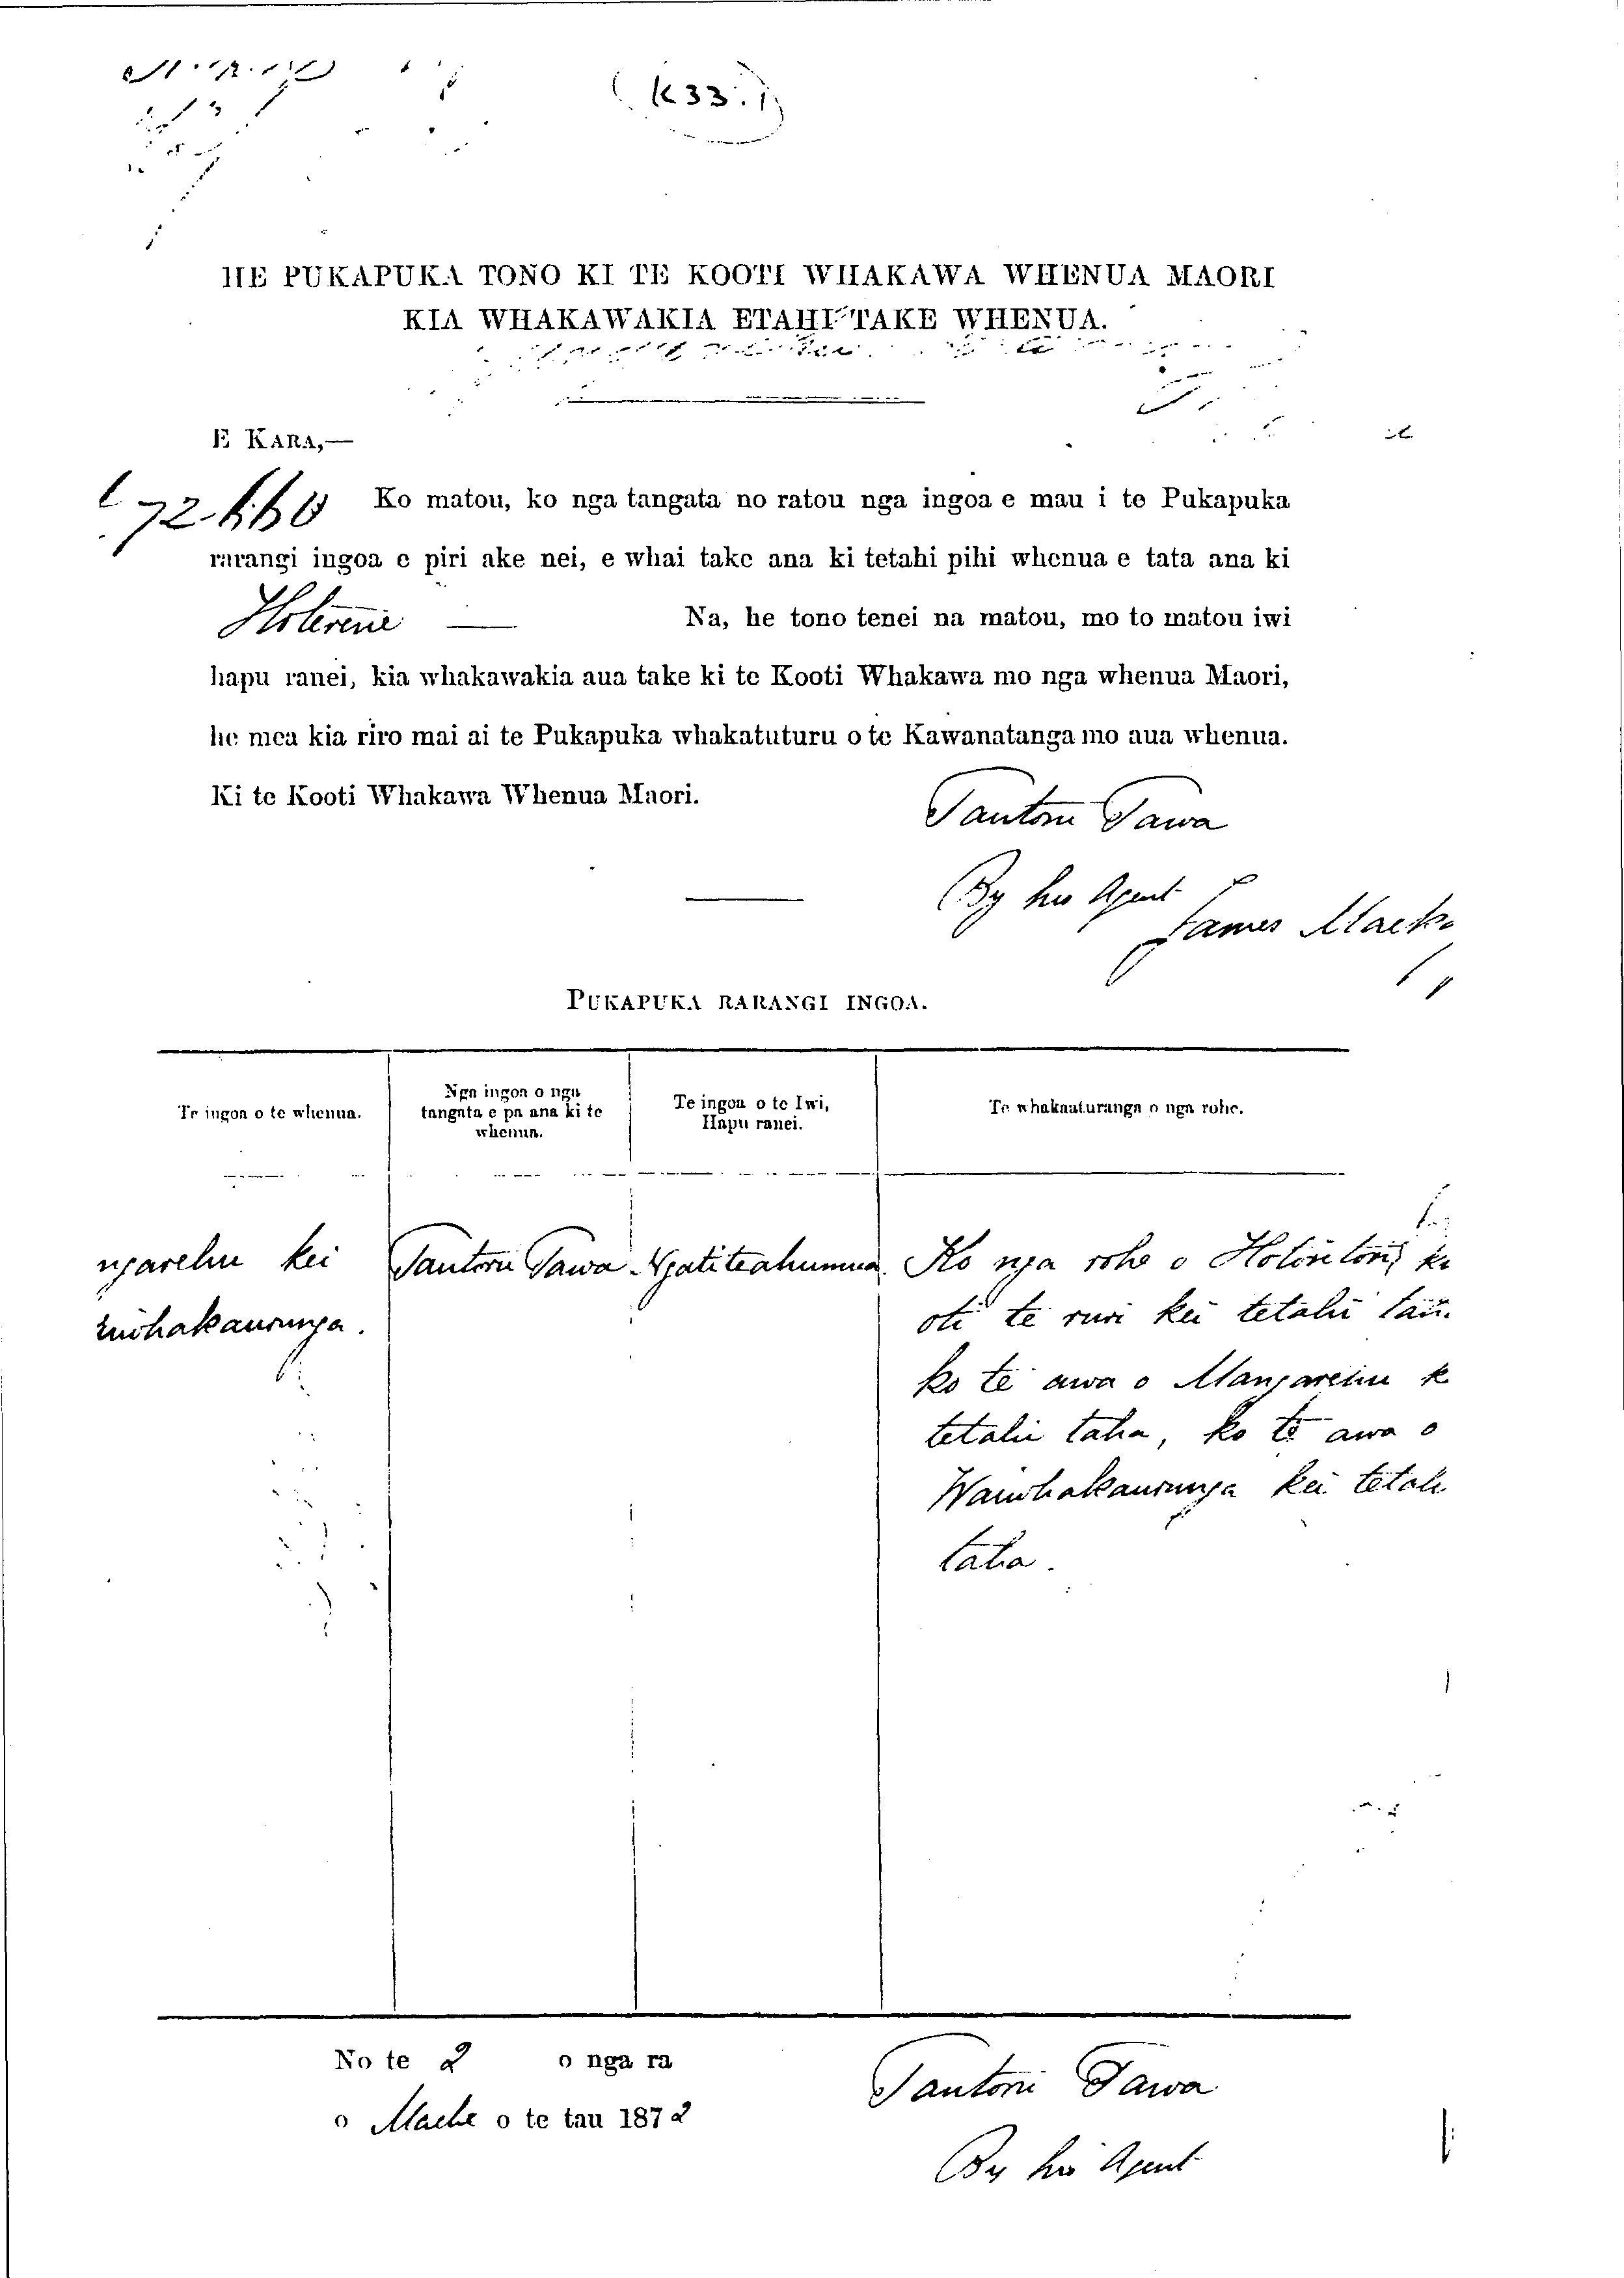 (K33.1)
HE PUKAPUKA TONO KI TE KOOTI WHAKAWA WHENUA MAORI
KIA WHAKAWAKIA ETAHI TAKE WHENUA.
E KARA,—
Ko matou, ko nga tangata no ratou nga ingoa e mau i te Pukapuka
rarangi ingoa e piri ake nei, e whai take ana ki tetahi pihi whenua e tata ana ki
Na, he tono tenei na matou, mo to matou iwi
hapu ranei, kia whakawakia aua take ki te Kooti Whakawa mo nga whenua Maori,
he mea kia riro mai ai te Pukapuka whakatuturu o te Kawanatanga mo aua whenua.
Ki te Kooti Whakawa Whenua Maori.
Tantoru Tawa
By his Agent
James Mack
PUKAPUKA RARANGI INGOA.
Te ingoa o te whenua.
Nga ingoa o nga
tangata e pa ana ki te
whenua.
Te ingoa o te Iwi,
Hapu ranei.
Te whakaaturanga o nga rohe.
ngarehu kei
whakaurunga.
Tawa
Ko nga rohe o
oti te ruri kei tetahi
ko te awa o Mangarehu k
tetahi taha, ko te awa o
Waiwhakaurunga kei tetah
taha.
No te 2 o nga ra
o Mache o te tau 1872
Tantoru Tawa
By his Agent